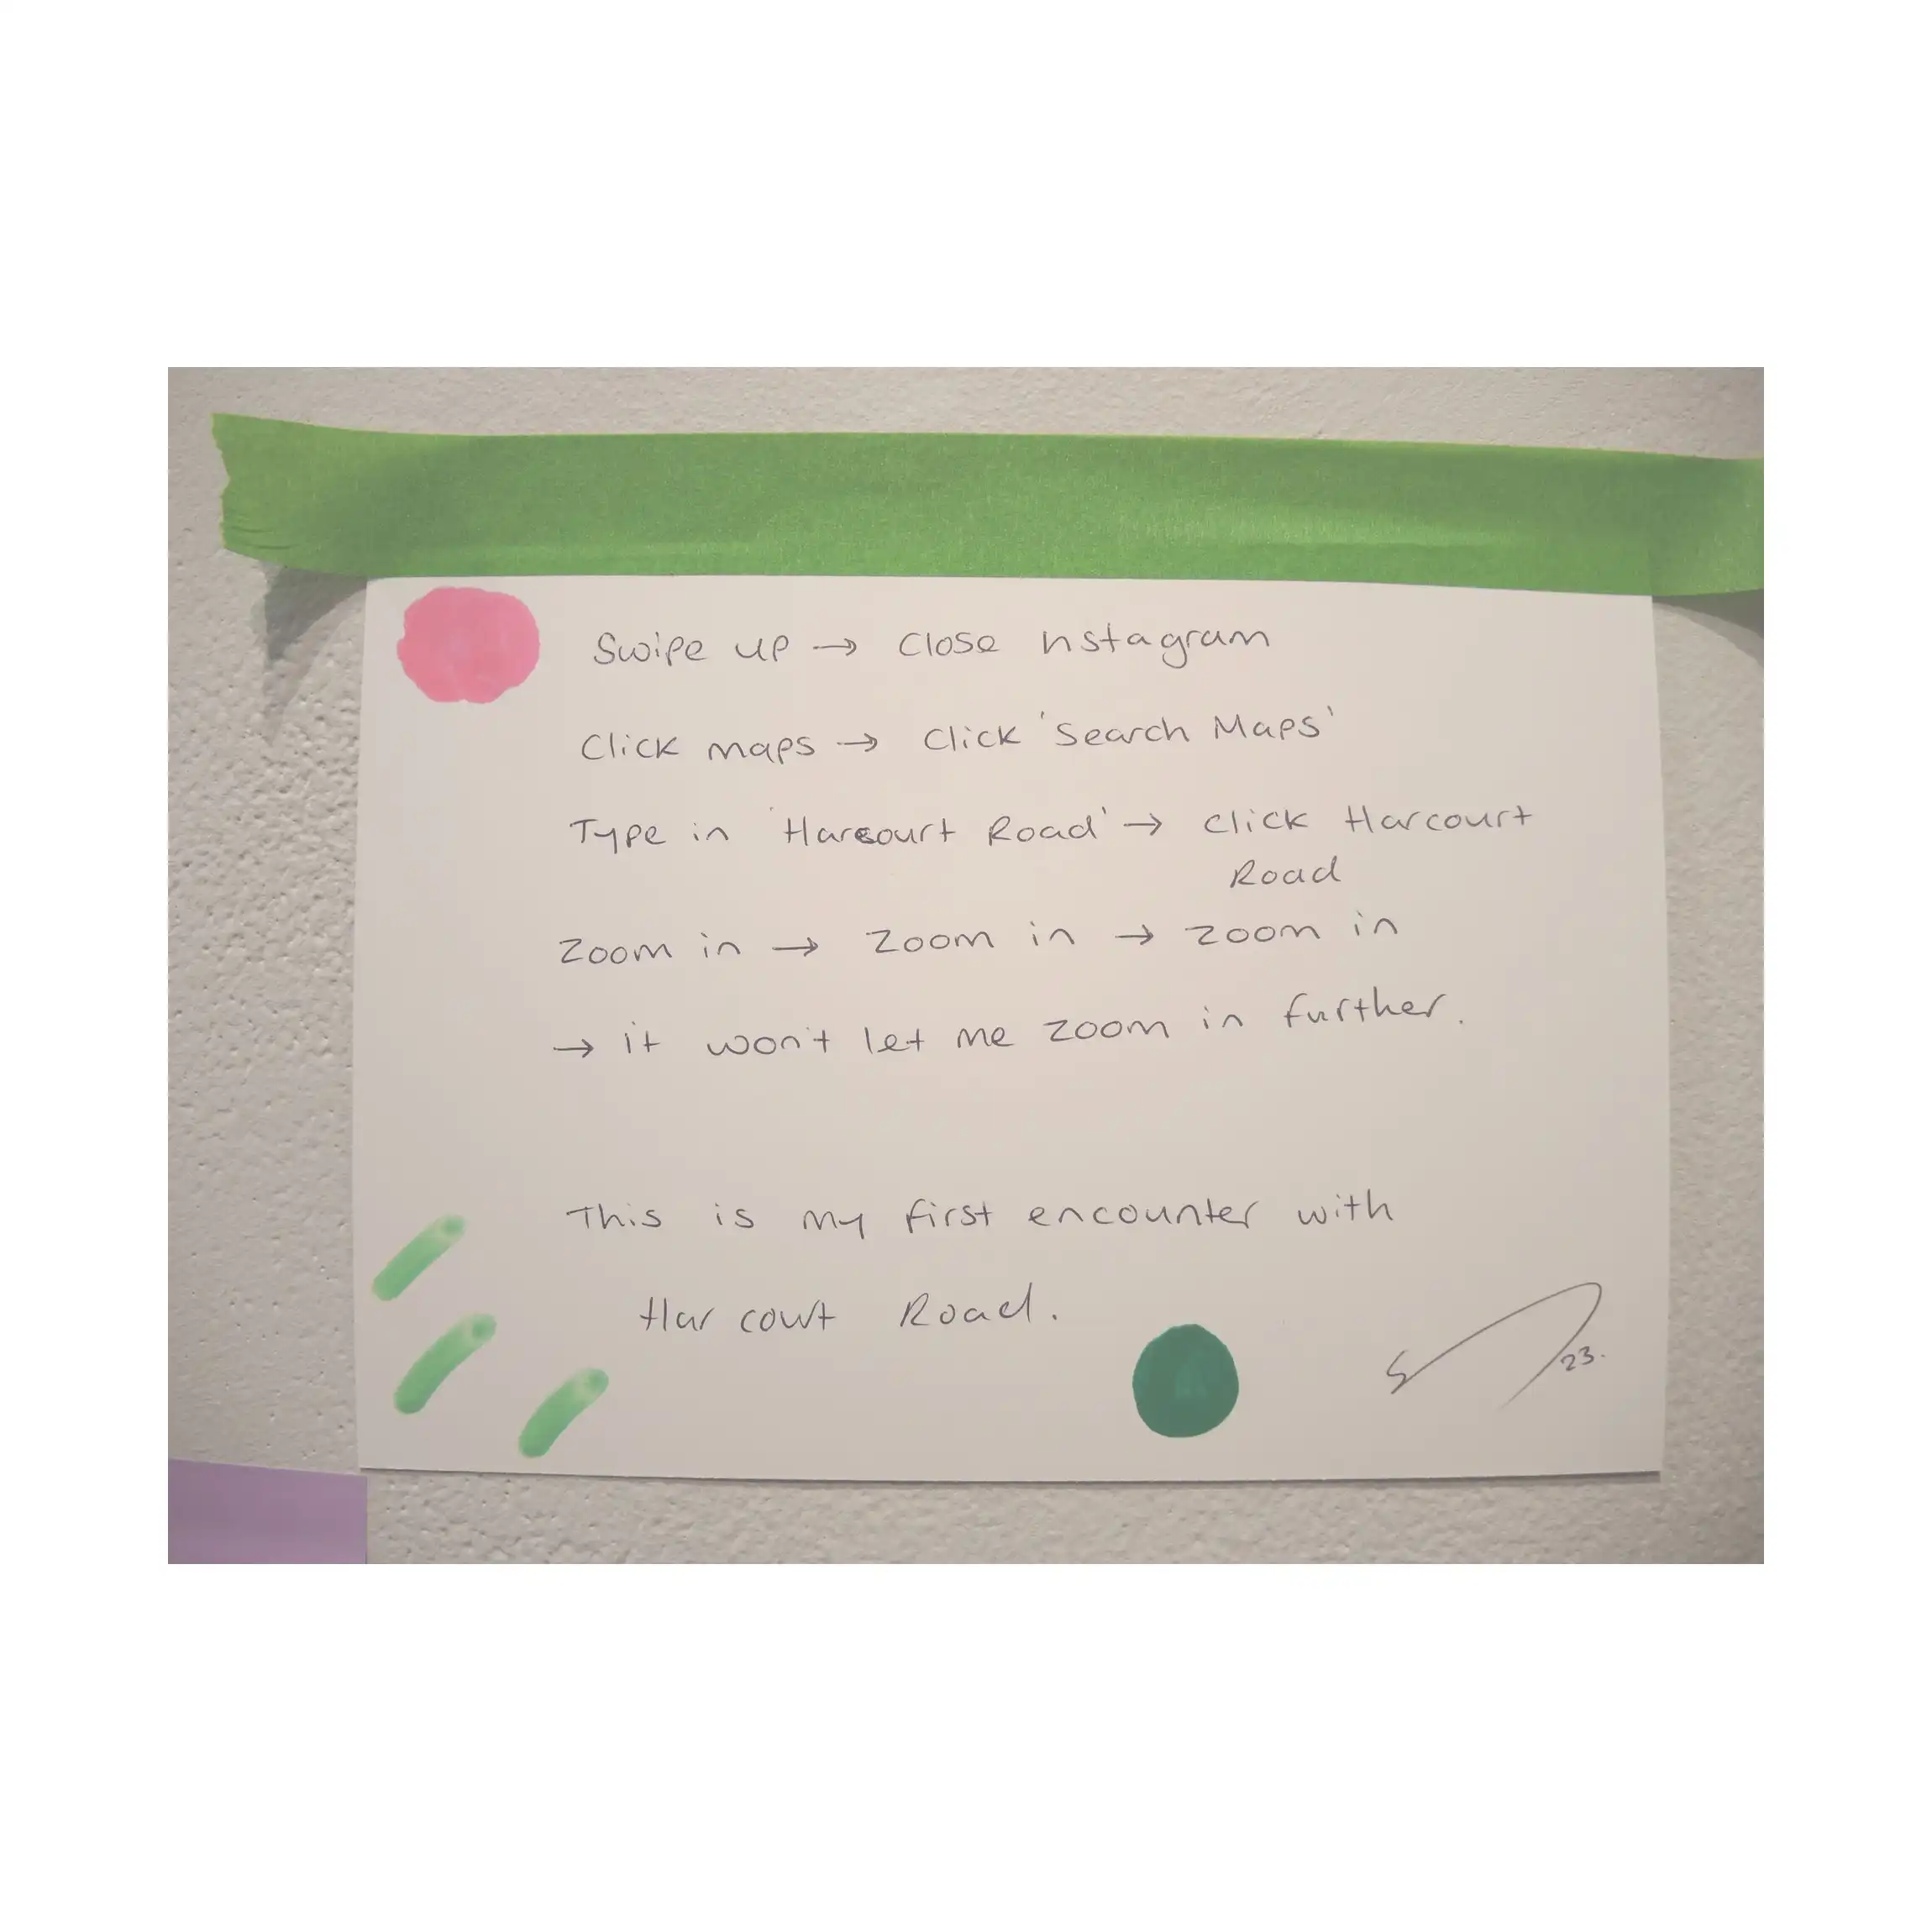 Swipe up → Close nstagram
Click maps → Click 'Search Maps'
Type in 'Harcourt Road' → click Harcourt
Road
Zoom in → Zoom in → zoom in
→ it won't let me zoom in further.
This is my first encounter with
Harcourt Road.
23.